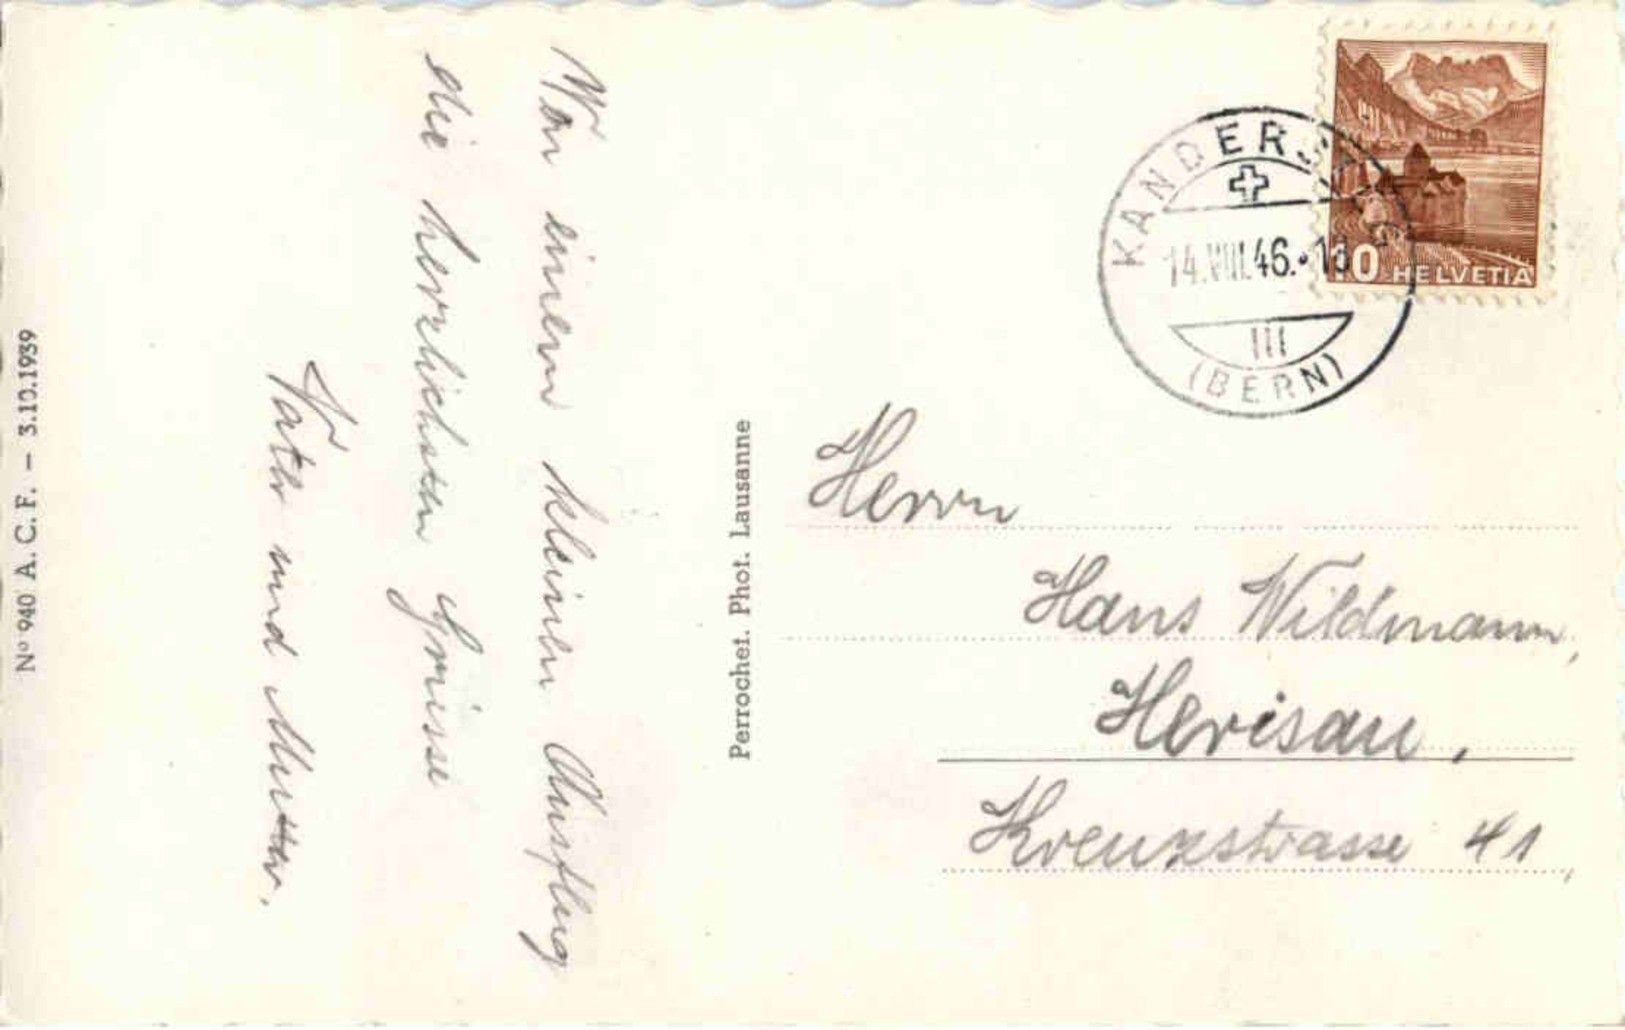 Von einem kleinen Ausflug
die herzlichsten Grüsse
Vater und Mutter.
Nº 940 A. C. F. – 3.10.1939
Perrochet. Phot. Lausanne
KANDERSTEG
14.VIII.46.
III
(BERN)
10 HELVETIA
Herrn
Hans Wildmann,
Herisau,
Kreuzstrasse 41